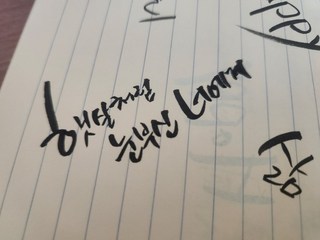 ppy
햇살처럼
눈부신 너에게